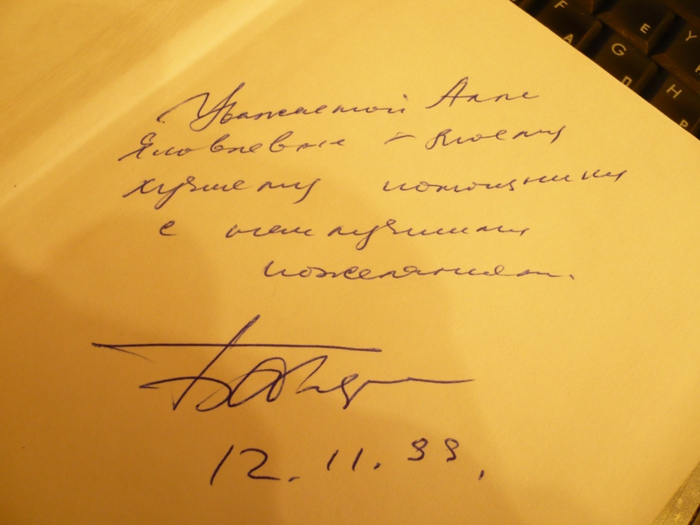 Уважаемой Анне
Яковлевне – моему
лучшему помощнику
с наилучшими
пожеланиями.
12.11.99.